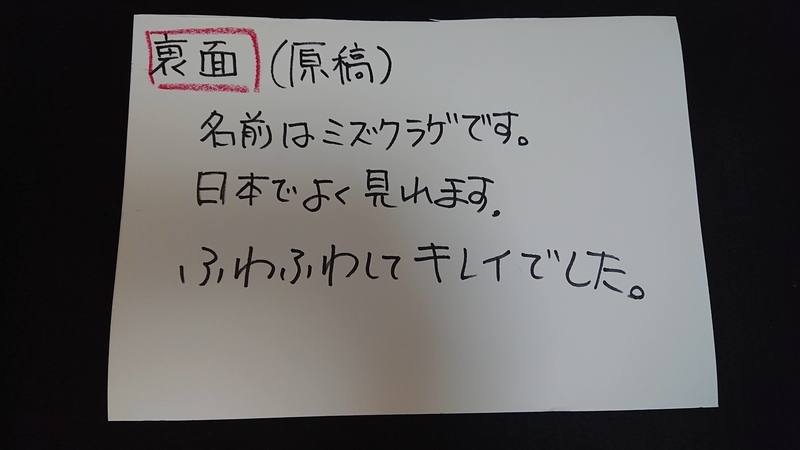 裏面(原稿)
名前はミズクラゲです。
日本でよく見れます。
ふわふわしてキレイでした。